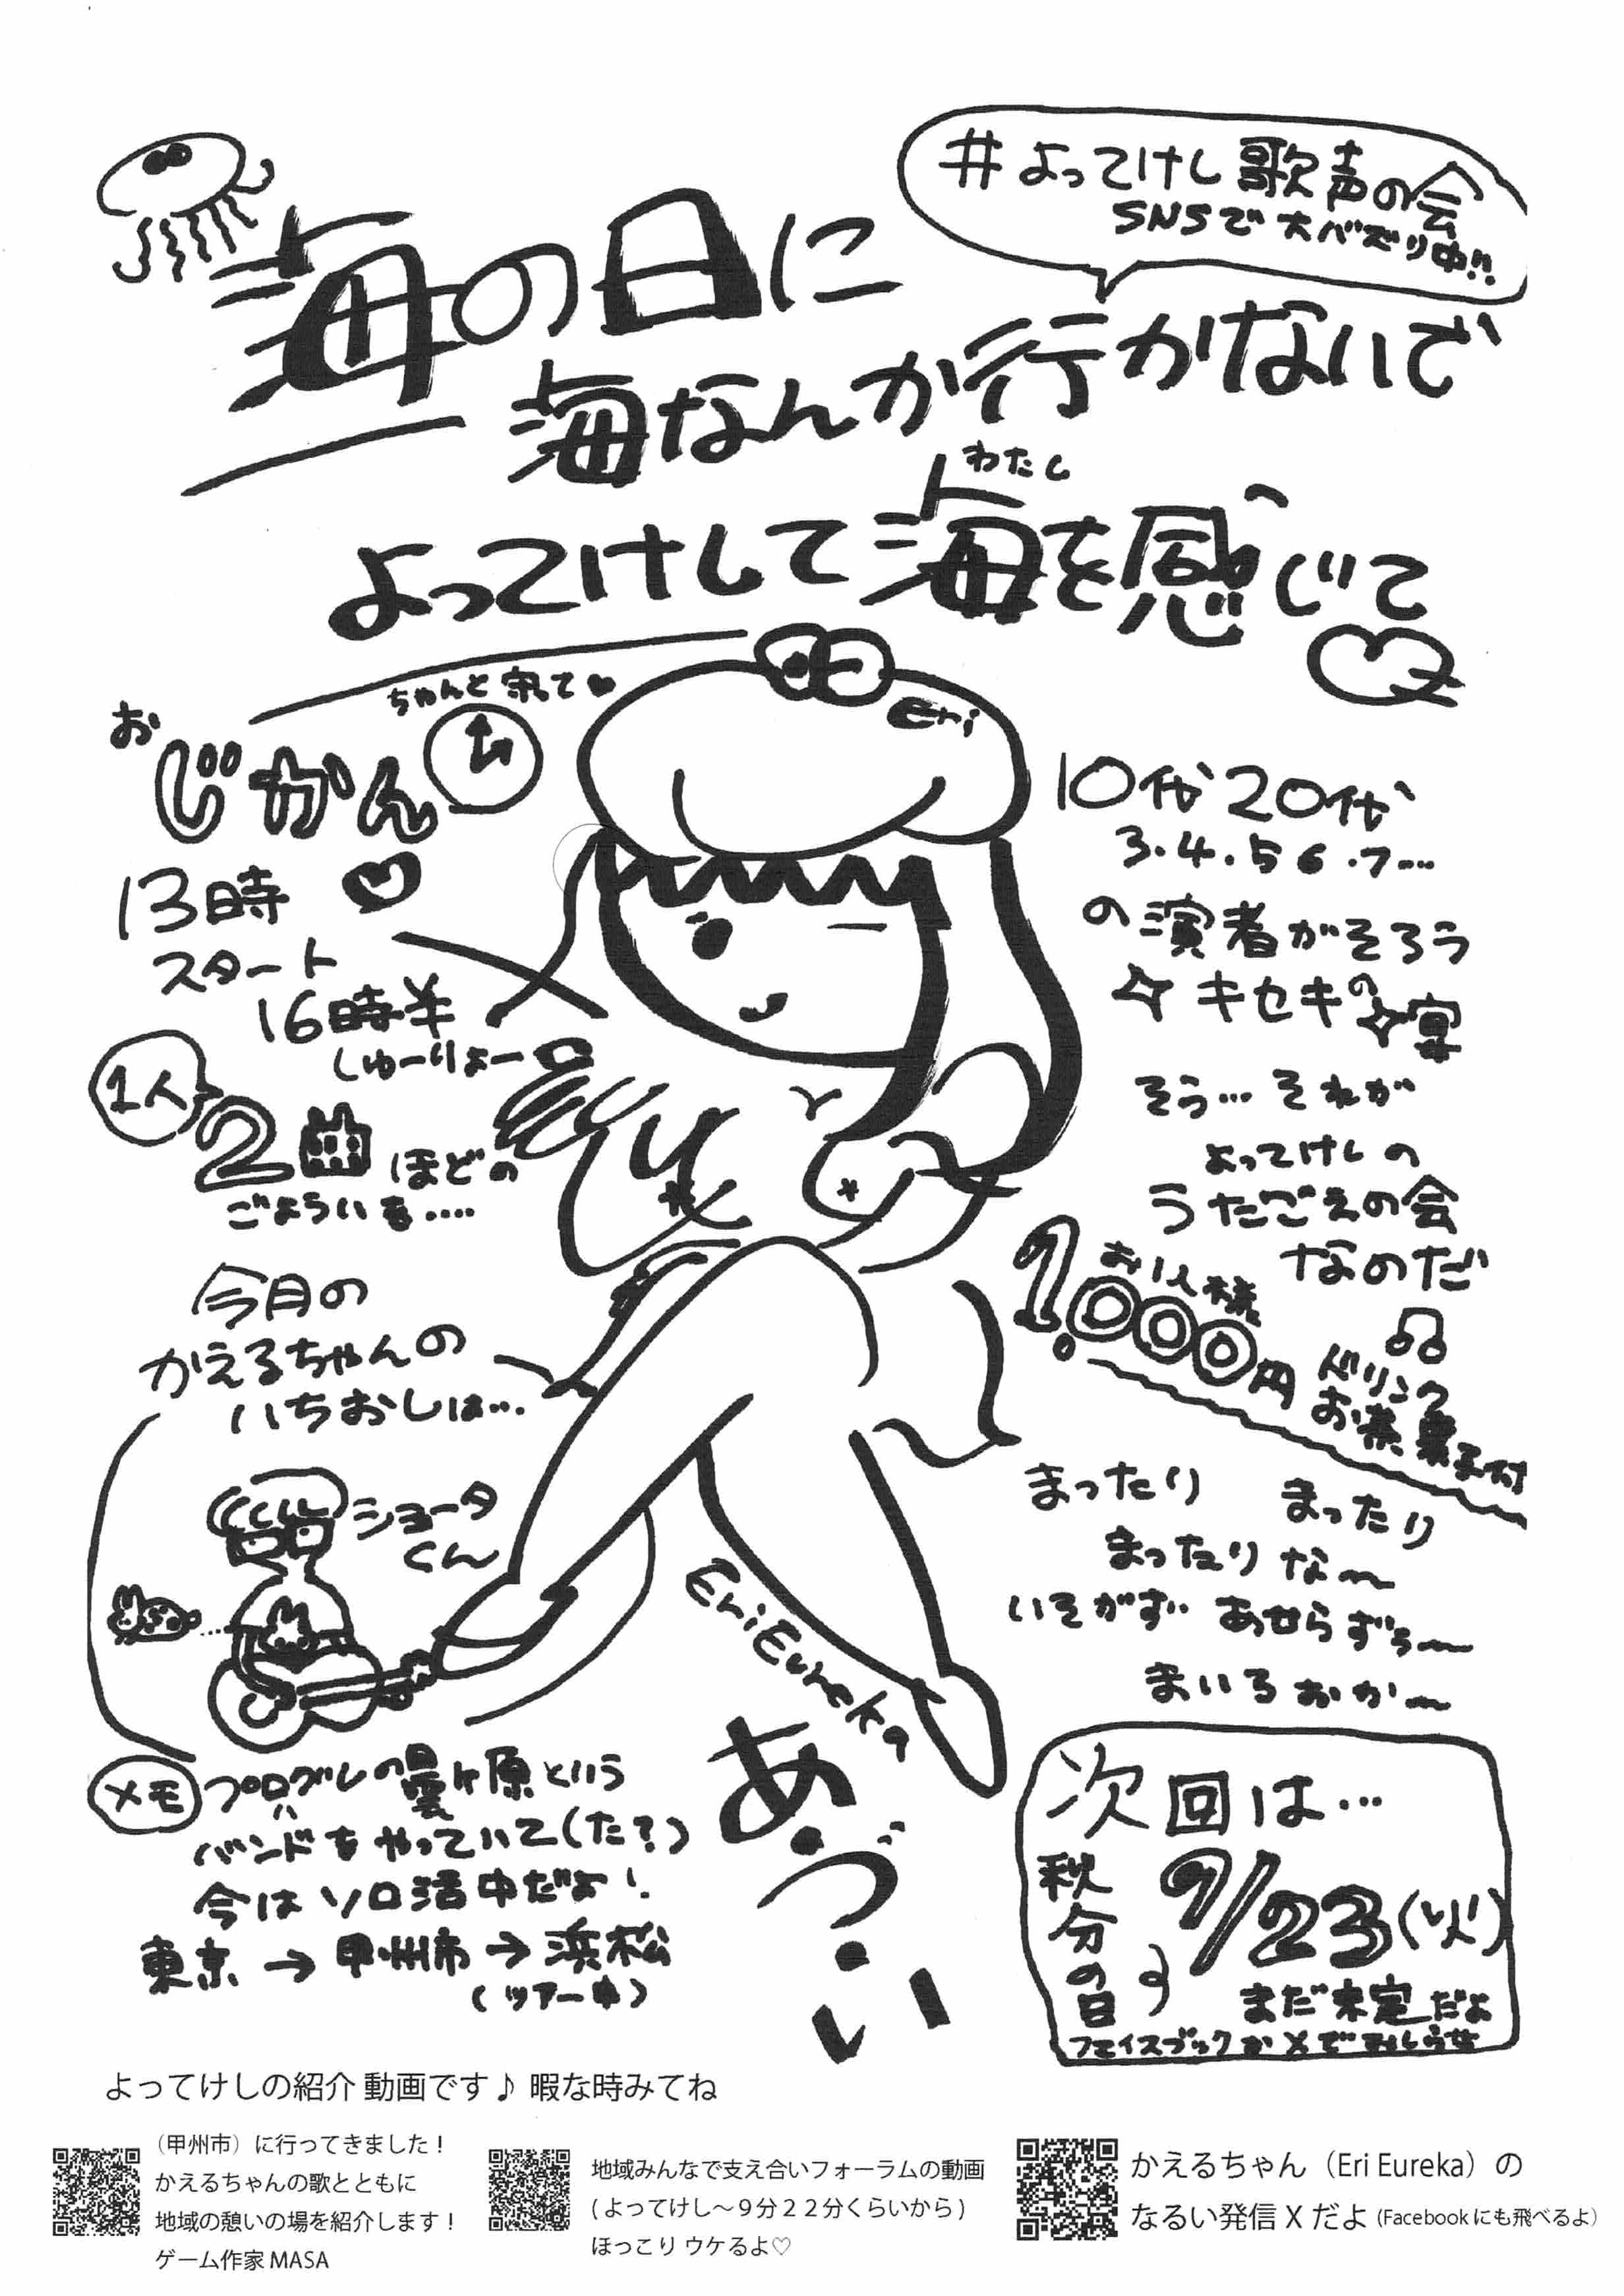 #よってけし歌声の会
SNSで大バズり中!!
海の日に
海なんか行かないで
わたし
よってけして海を感じて
ちゃんと守って♥
おじかん
Eri
13時
スタート
16時半
しゅーりょー
1人
2曲ほどの
ごよういを....
今月の
かえるちゃんの
いちおしは...
ショータ
くん
10代20代
3.4.5 6.7...
の演者がそろう
キセキの宴
そう...それが
よってけしの
うたごえの会
なのだ
お1人様
1,000円
ドリンク
お茶菓子付
まったり まったり
まったりな〜
いそがず あせらずぅ〜
まいろおか〜
Eri Eureka
あ・づ・い
メモ
プログレの曇ヶ原という
バンドをやっていて(た?)
今はソロ活中だよ!
東京→甲州市→浜松
(ツアー中)
次回は...
秋分の日
9/23(火)
まだ未定だよ
フェイスブックかXで
よってけしの紹介 動画です♪ 暇な時みてね
(甲州市)に行ってきました!
かえるちゃんの歌とともに
地域の憩いの場を紹介します!
ゲーム作家 MASA
地域みんなで支え合いフォーラムの動画
(よってけし〜9分22分くらいから)
ほっこり ウケるよ♡
かえるちゃん(Eri Eureka)の
なるい発信 X だよ (Facebookにも飛べるよ)